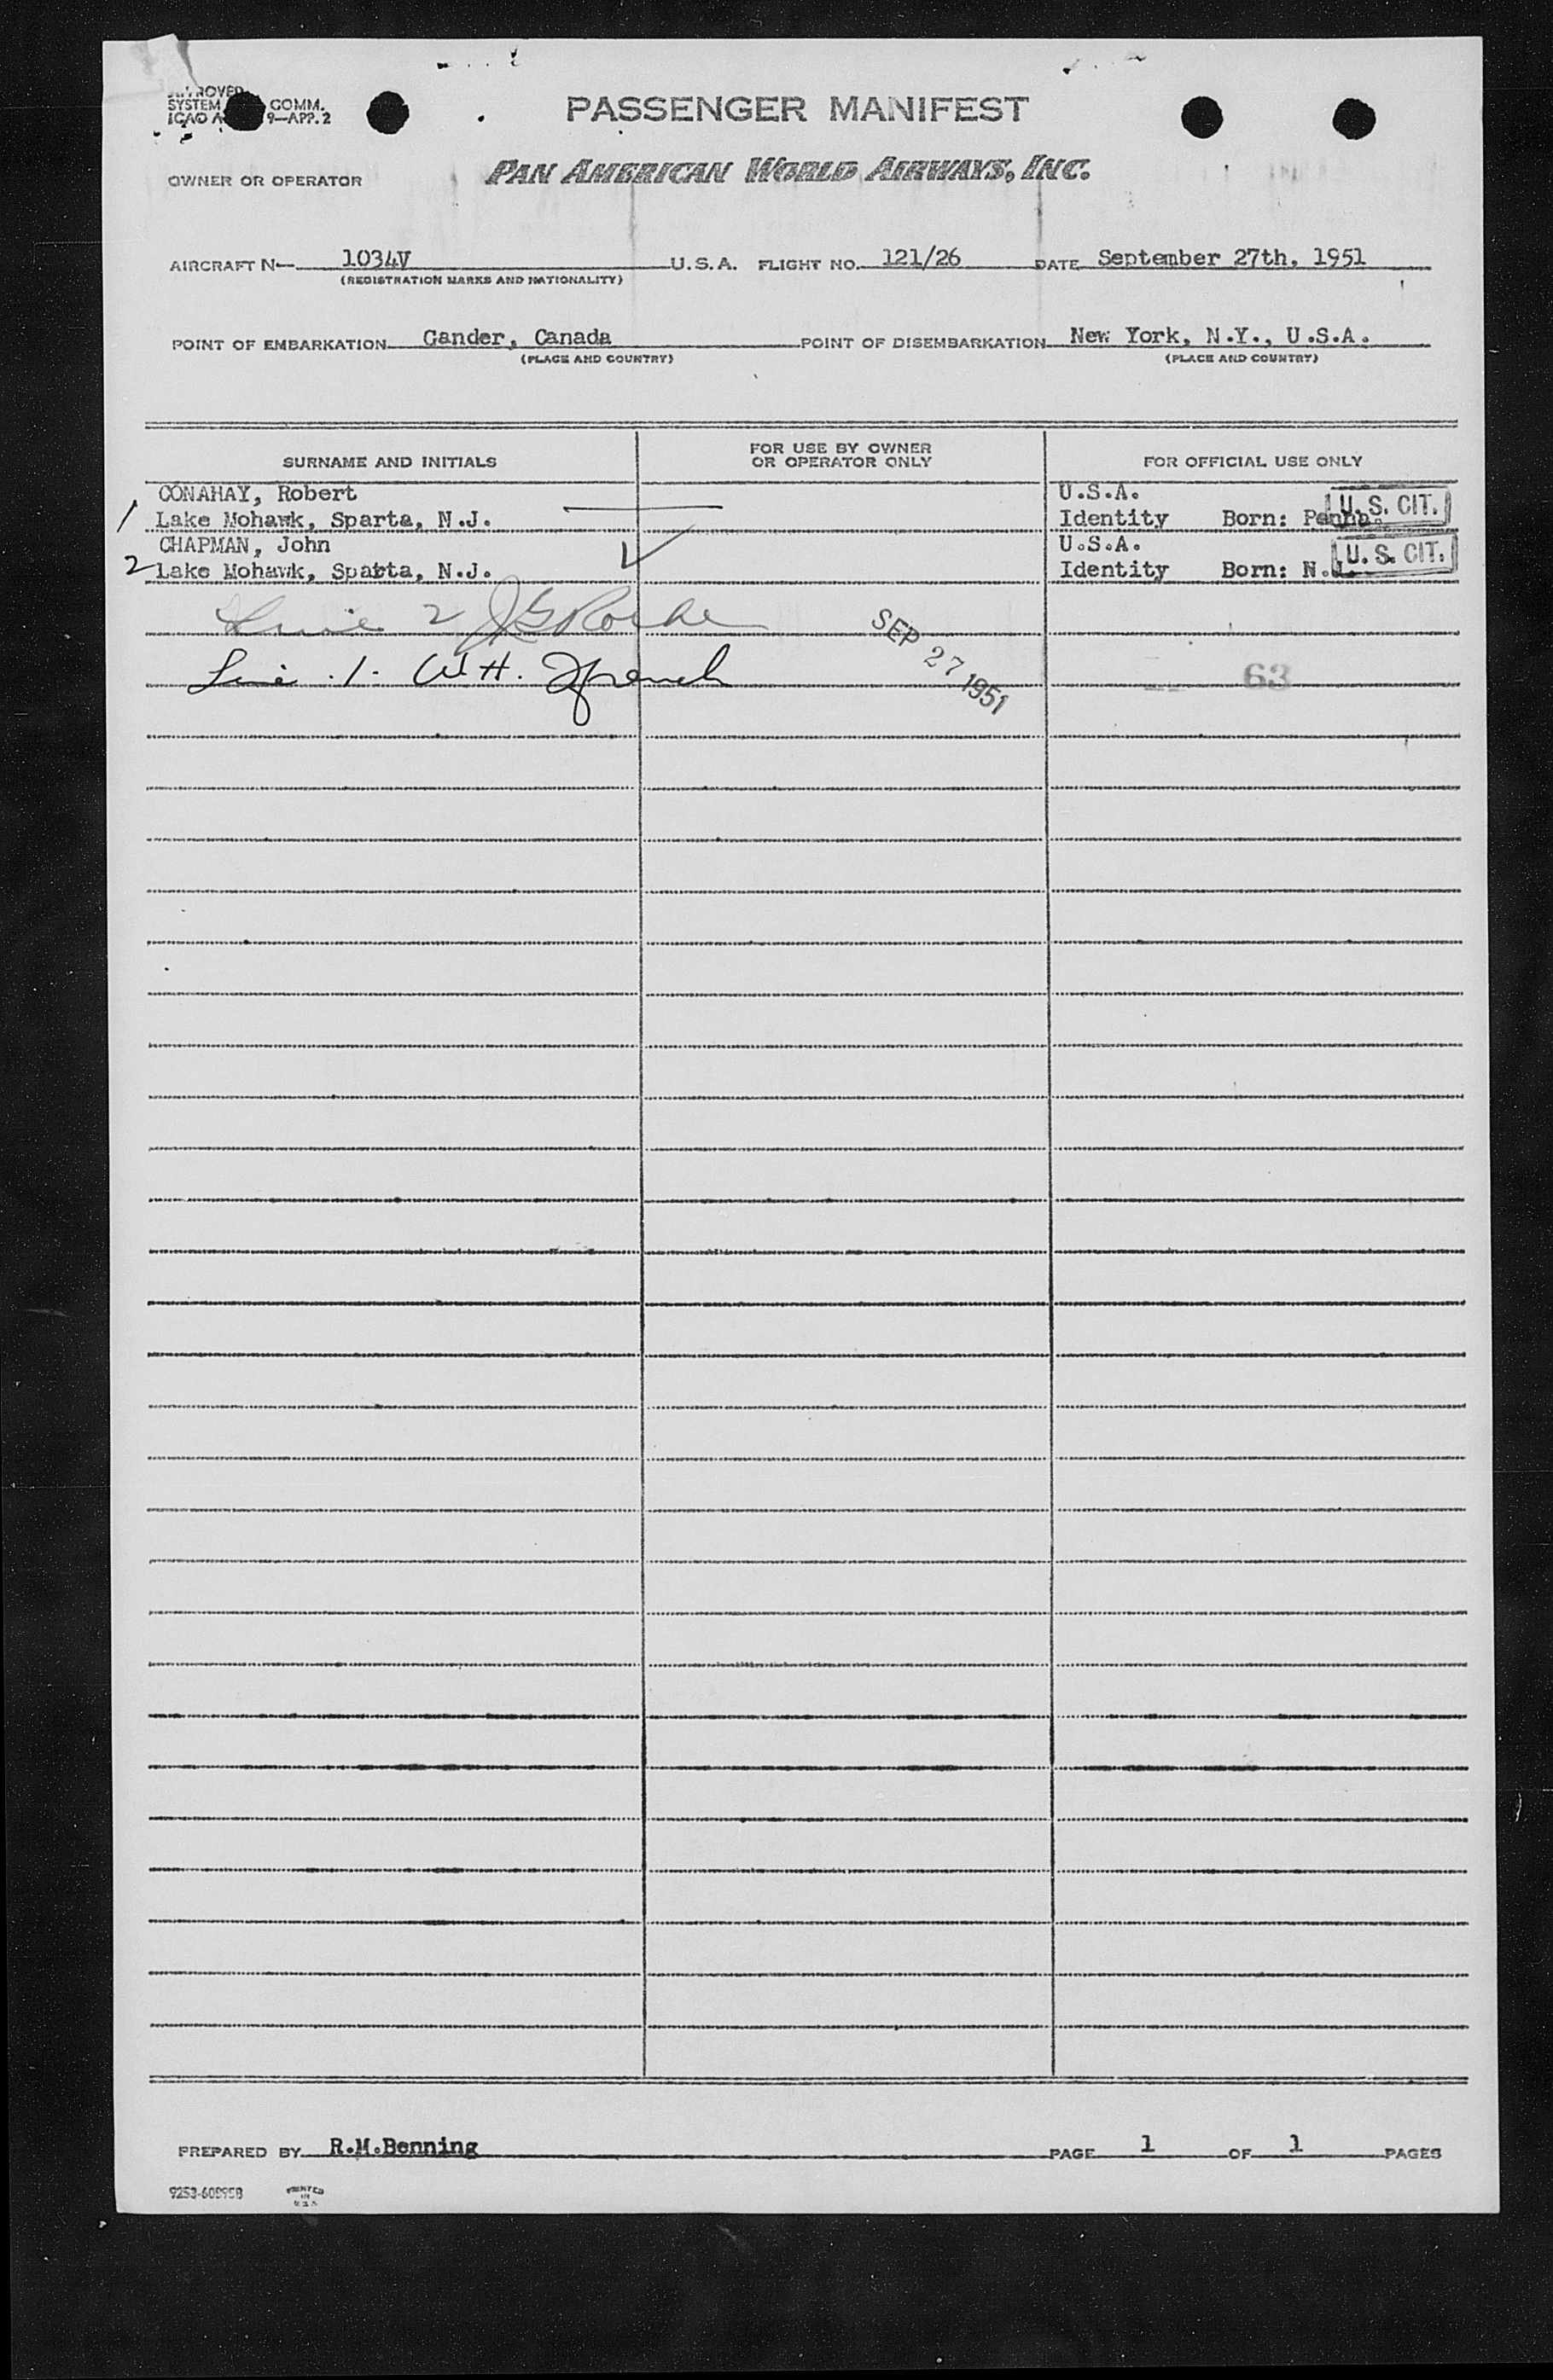 SYSTEM COMM.
ICAO 9—APP. 2
PASSENGER MANIFEST
OWNER OR OPERATOR PAN AMERICAN WORLD AIRWAYS, INC.
AIRCRAFT N— 1034V U.S.A. FLIGHT NO. 121/26 DATE September 27th, 1951
(REGISTRATION MARKS AND NATIONALITY)
POINT OF EMBARKATION Gander, Canada POINT OF DISEMBARKATION New York, N.Y., U.S.A.
(PLACE AND COUNTRY) (PLACE AND COUNTRY)
SURNAME AND INITIALS FOR USE BY OWNER OR OPERATOR ONLY FOR OFFICIAL USE ONLY
CONAHAY, Robert U.S.A.
1 Lake Mohawk, Sparta, N.J. Identity Born: Penna. U.S. CIT.
CHAPMAN, John U.S.A.
2 Lake Mohawk, Sparta, N.J. Identity Born: N. U.S. CIT.
Line 2 J G Roche
SEP 27 1951
Line 1. W H. French 63
PREPARED BY R.M.Benning PAGE 1 OF 1 PAGES
PRINTED
IN
U.S.A.